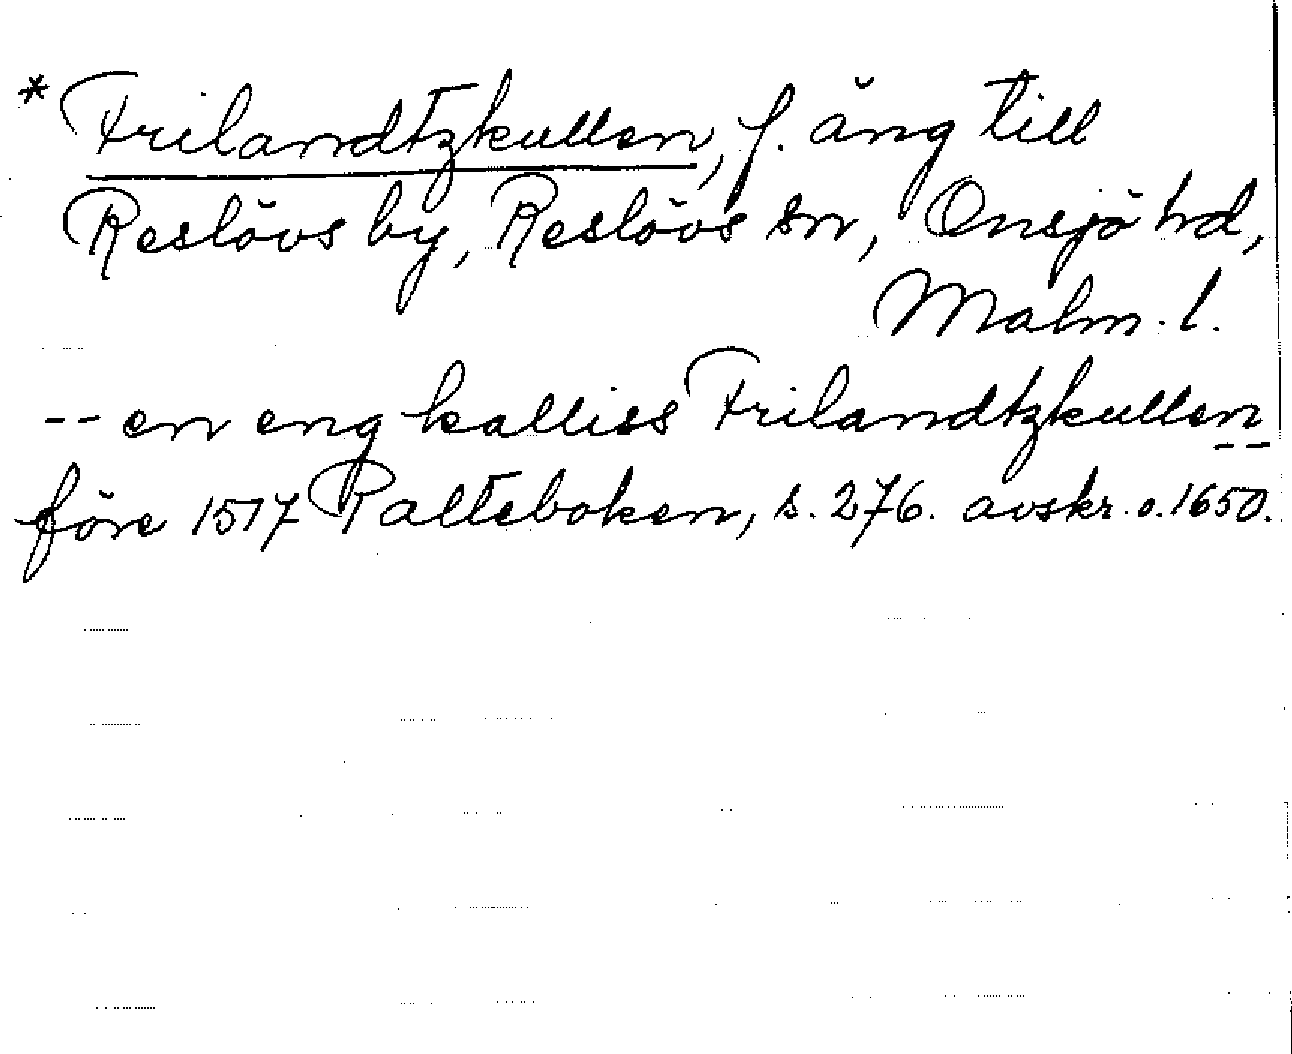 * Frilandtzkullen, f. äng till
Reslövs by, Reslövs sn, Onsjö hd,
Malm. l.
-- en eng kalliss Frilandtzkullen
--
före 1517 Palteboken, s. 276. avskr. o. 1650.